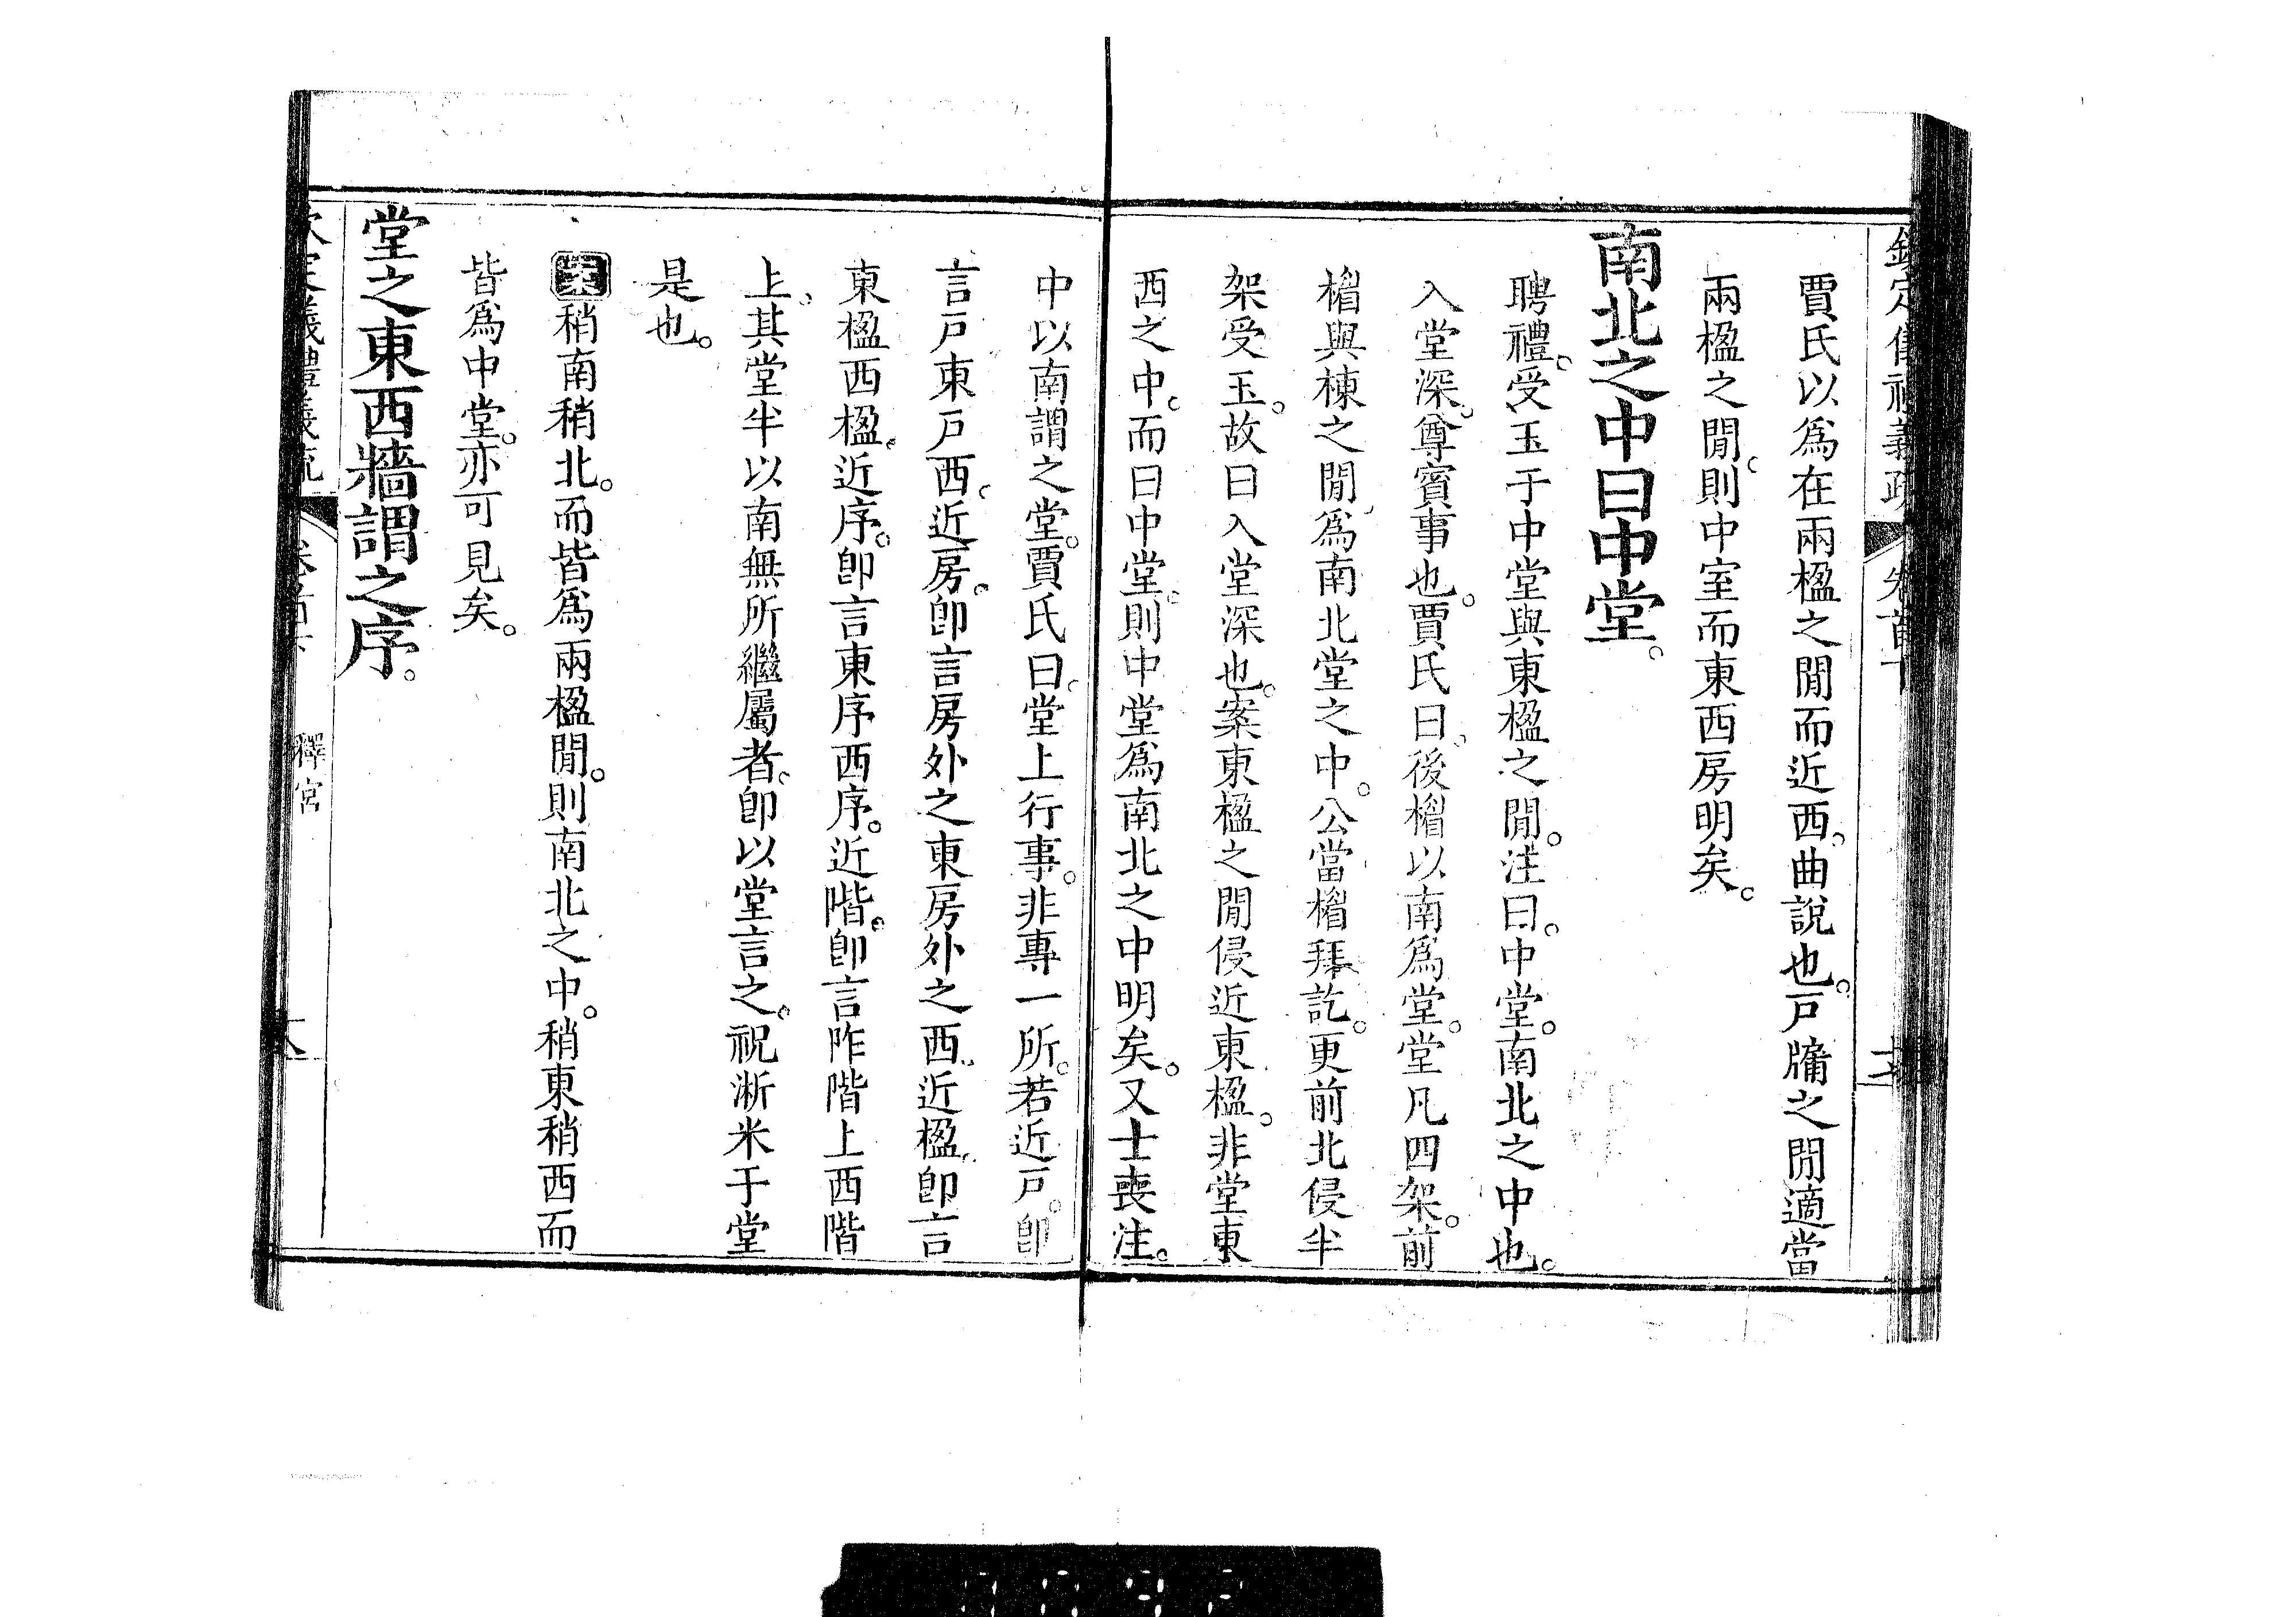 賈氏以爲在兩楹之閒而近西。曲説也。戸牖之閒適當
兩楹之閒。則中室而東西房明矣。
南北之中曰中堂。
聘禮。受玉于中堂與東楹之閒。注曰。中堂。南北之中也。
入堂深。尊賓事也。賈氏曰。後楣以南爲堂。堂凡四架。前
楣與棟之閒。爲南北堂之中。公當楣拜訖。更前北侵半
架受玉。故曰入堂深也。案東楹之閒侵近東楹。非堂東
西之中。而曰中堂。則中堂爲南北之中明矣。又士喪注。
中以南謂之堂。賈氏曰。堂上行事。非專一所。若近戸。卽
言戸東戸西。近房。卽言房外之東房外之西。近楹。卽言
東楹西楹。近序。卽言東序西序。近階。卽言阼階上西階
上。其堂半以南無所繼屬者。卽以堂言之。祝淅米于堂
是也。
稍南稍北。而皆爲兩楹閒。則南北之中。稍東稍西而
皆爲中堂。亦可見矣。
堂之東西牆謂之序。
釋宮